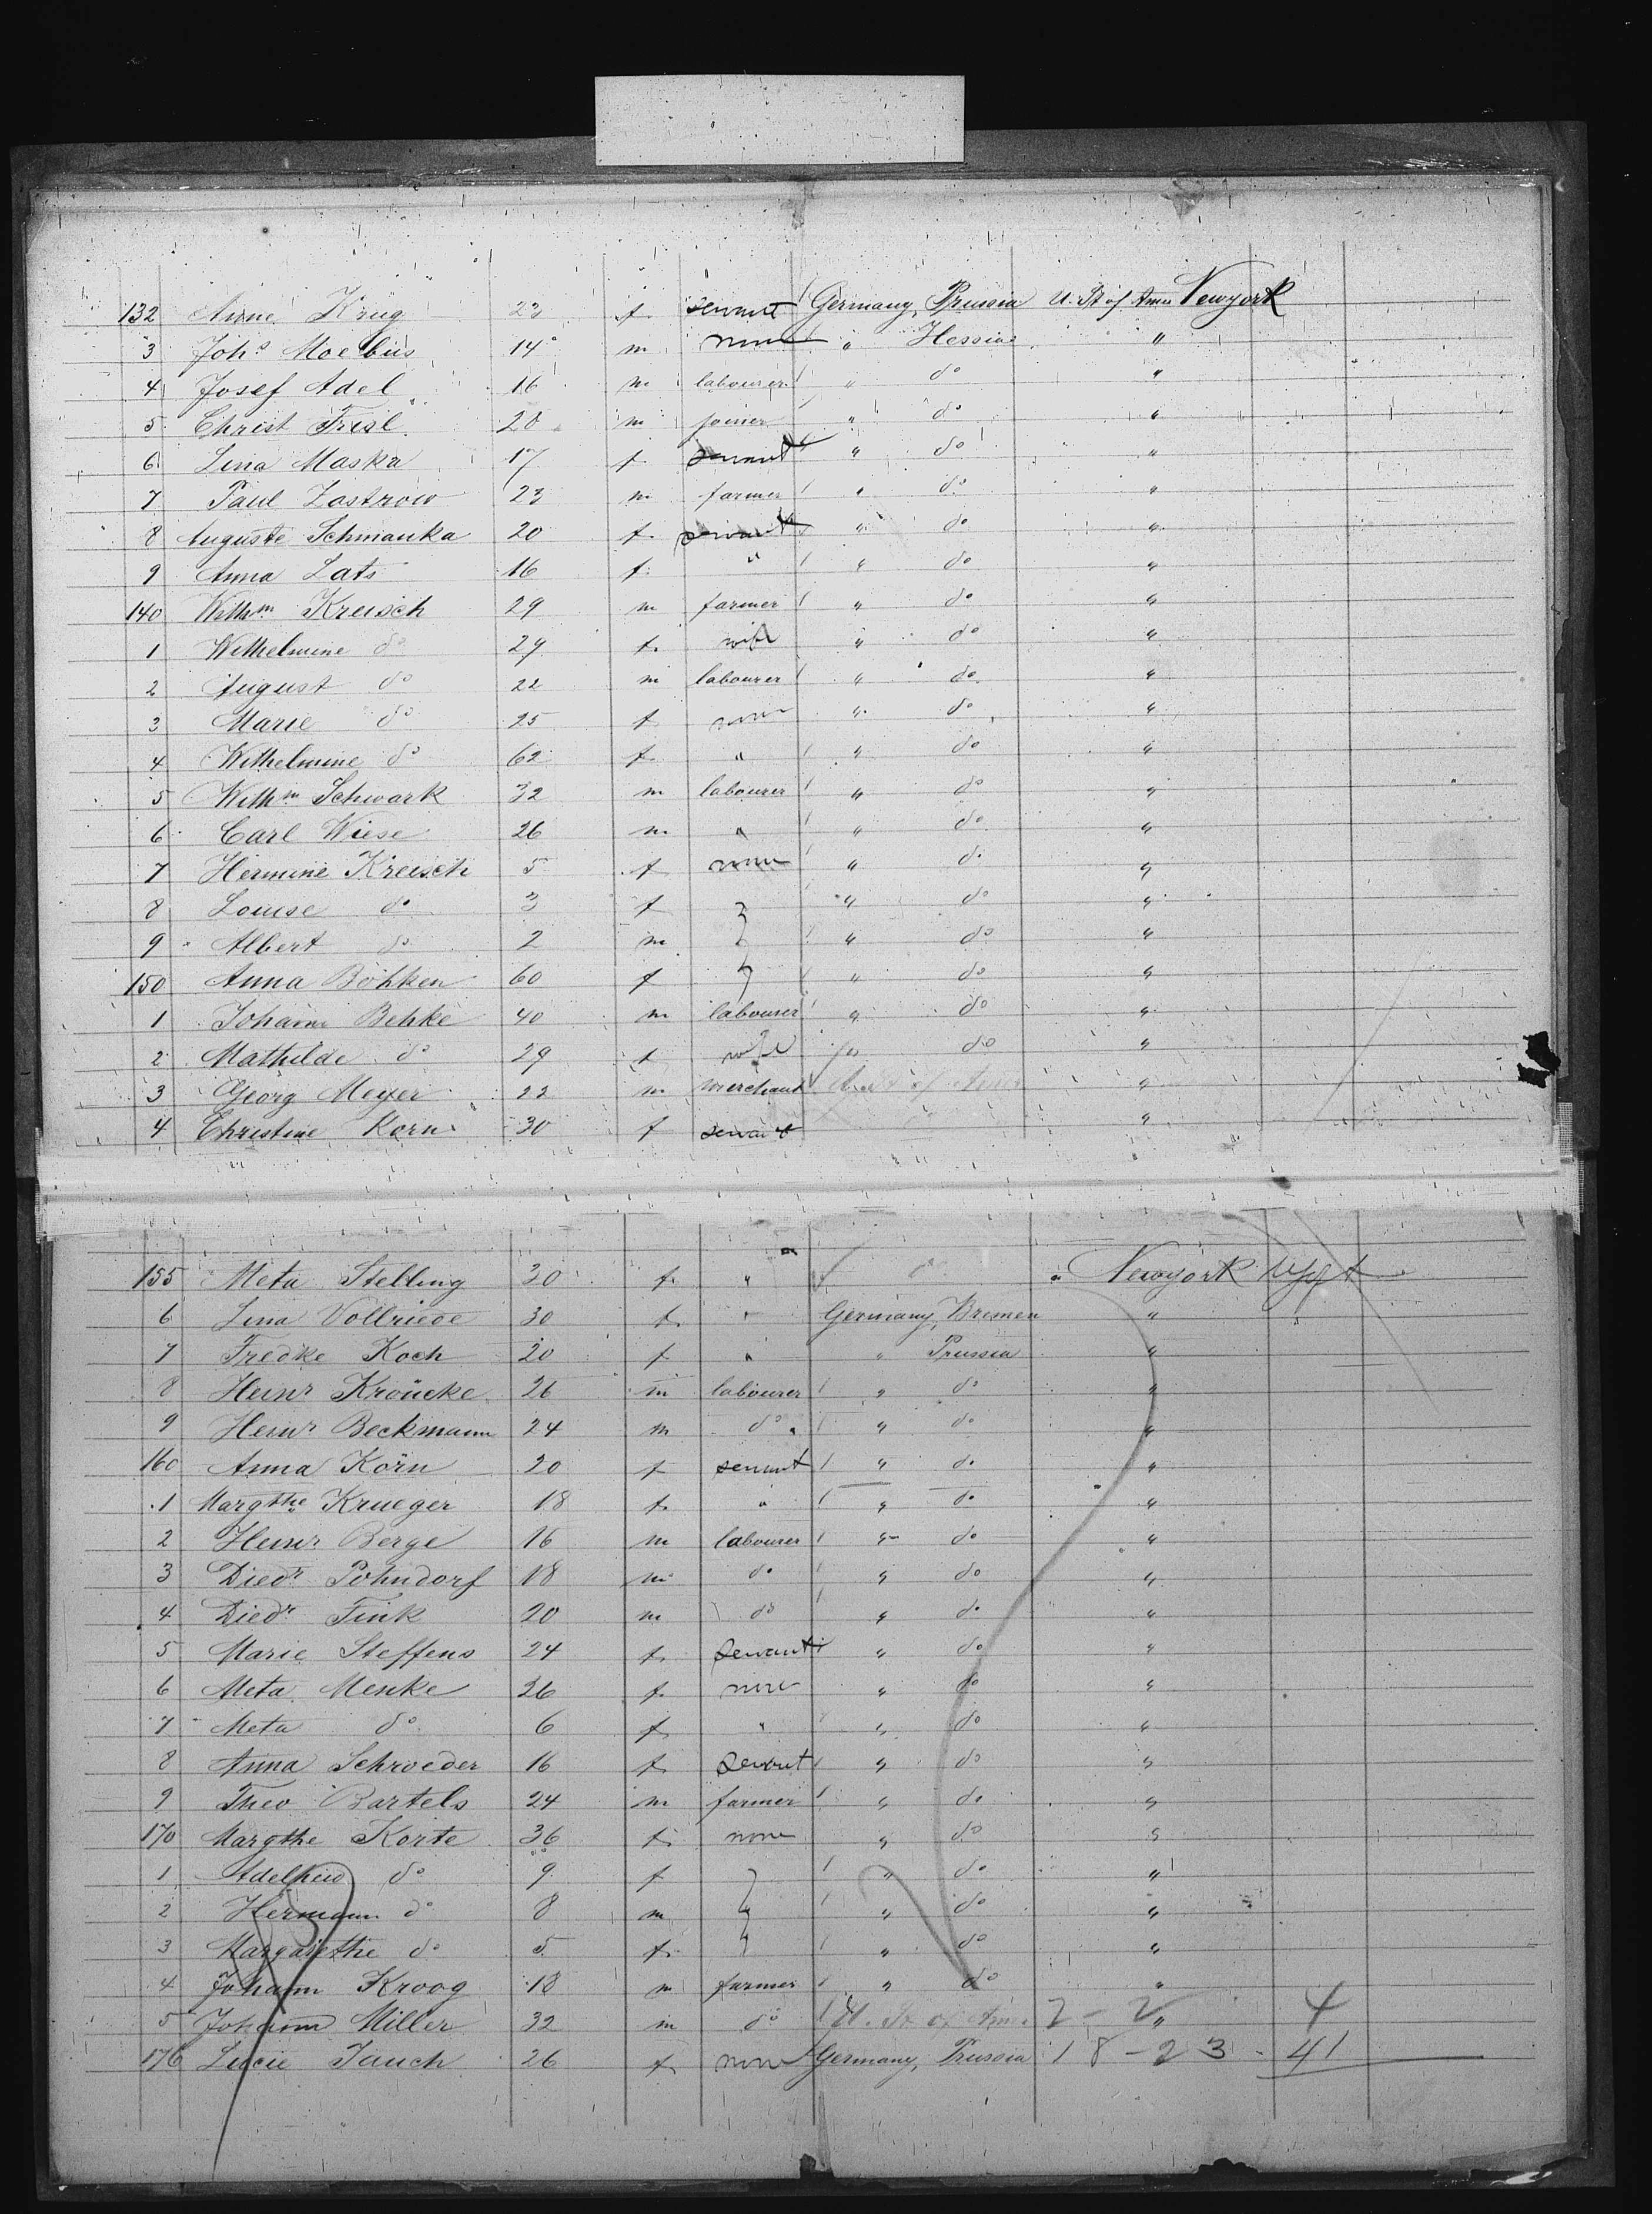 132 Anne Krug 23 f. servant Germany, Prussia U. St of Amer Newyork
3 Joh.s Moebius 14 m none " Hessia "
4 Josef Adel 16 m labourer " do "
5 Christ Frisl 20 m joiner " do "
6 Lina Maska 17 f servant " do "
7 Paul Zastrow 23 m farmer " do "
8 Auguste Schmanka 20 f. servant " do "
9 Anna Lats 16 f. " " do "
140 Wilhm Kreisch 29 m farmer " do "
1 Wilhelmine do 29 f. wife " do "
2 August do 22 m labourer " do "
3 Marie do 25 f none " do "
4 Wilhelmine do 62 f. " " do "
5 Wilhm Schwark 32 m labourer " do "
6 Carl Wiese 26 m. " " do "
7 Hermine Kreisch 5 f none " do "
8 Louise do 3 f } " do "
9 Albert do 2 m } " do "
150 Anna Böhken 60 f } " do "
1 Johann Behke 40 m labourer " do "
2 Mathilde do 29 f wife " do "
3 Georg Meyer 22 m merchant U. St of Amer "
4 Christine Korn 30 f servant "
155 Meta Stelling 30 f. " do " Newyork
6 Lina Vollriede 30 f. " Germany, Bremen "
7 Fredke Koch 20 f " " Prussia "
8 Heinr Kröncke 26 m labourer " do "
9 Heinr Beckmann 24 m do " do "
160 Anna Körn 20 f servant " do "
1 Margthe Krueger 18 f. " " do "
2 Heinr Berge 16 m labourer " do "
3 Diedr Pohndorf 18 m do " do "
4 Diedr Fink 20 m do " do "
5 Marie Steffens 24 f. servant " do "
6 Meta Menke 26 f. none " do "
7 Meta do 6 f. " " do "
8 Anna Schroeder 16 f. servant " do "
9 Theo Bartels 24 m farmer " do "
170 Margthe Korte 36 f. none " do "
1 Adelheid do 9 f } " do "
2 Hermann do 8 m } " do "
3 Margarethe do 5 f. } " do "
4 Johann Kroog 18 m farmer " do "
5 Johann Miller 32 m do U. St of Amer 2 - 2 " 4
176 Lucie Jauch 26 f. none Germany, Prussia 18 - 23 - 41